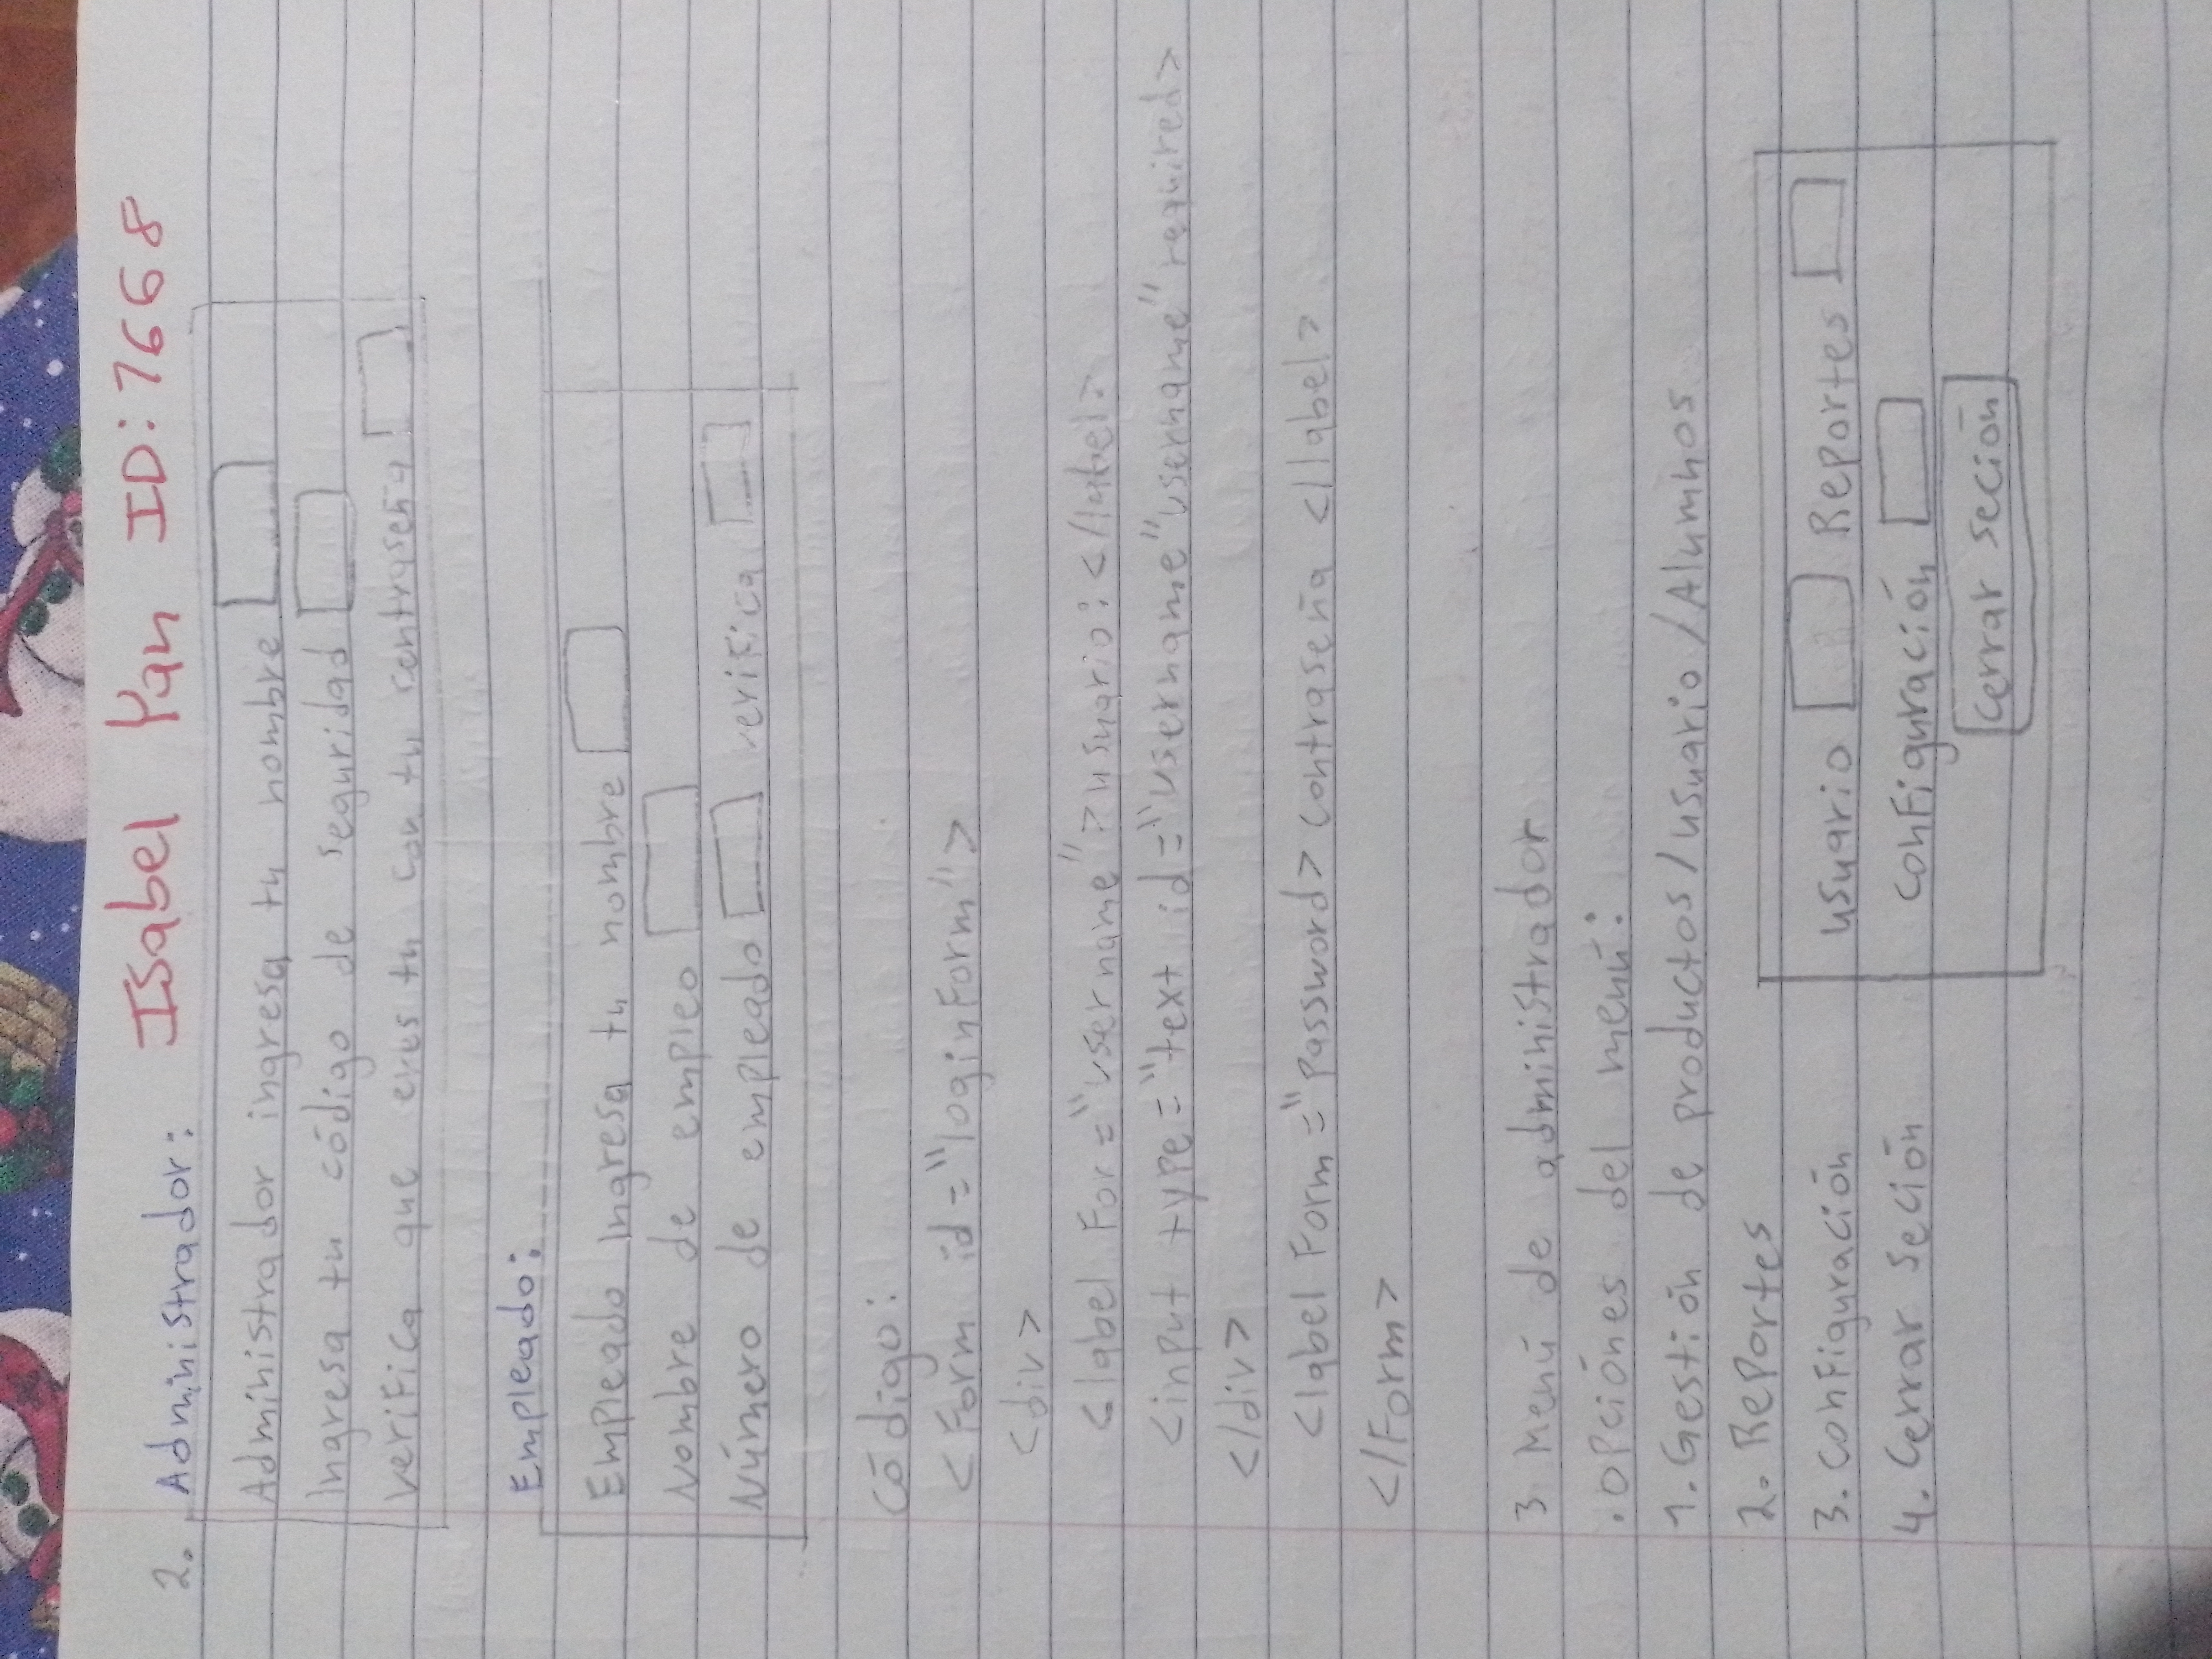 Isabel Yan ID:7668
2. Administrador:
Administrador ingresa tu nombre
Ingresa tu código de seguridad
verifica que eres tu con tu contraseña
Empleado:
Empleado Ingresa tu nombre
Nombre de empleo
Número de empleado verifica
Código:
<Form id="loginForm">
<div>
<label For="username">usuario:</label>
<input type="text id="username" username" required>
</div>
<label Form="password> contraseña </label>
</Form>
3 Menú de administrador
. Opciónes del menú:
1. Gestión de productos/usuario/Alumnos
2. Reportes
3. Configuración
4. Cerrar Seción
usuario Reportes
configuración
Cerrar Seción